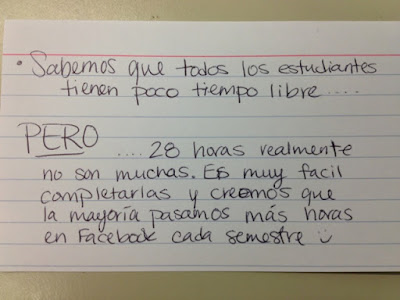 • Sabemos que todos los estudiantes
tienen poco tiempo libre ....
PERO
.... 28 horas realmente
no son muchas. Es muy facil
completarlas y creemos que
la mayoría pasamos más horas
en Facebook cada semestre ಲ